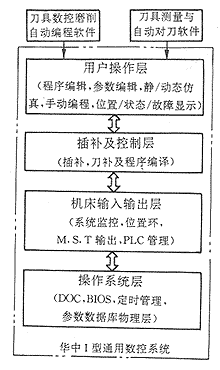 刀具数控磨削
自动编程软件
刀具测量与
自动对刀软件
用户操作层
(程序编辑,参数编辑,静/动态仿
真,手动编程,位置/状态/故障显示)
插补及控制层
(插补,刀补及程序编译)
机床输入输出层
(系统监控,位置环,
M、S、T输出,PLC管理)
操作系统层
(DOC,BIOS,定时管理,
参数数据库物理层)
华中Ⅰ型通用数控系统